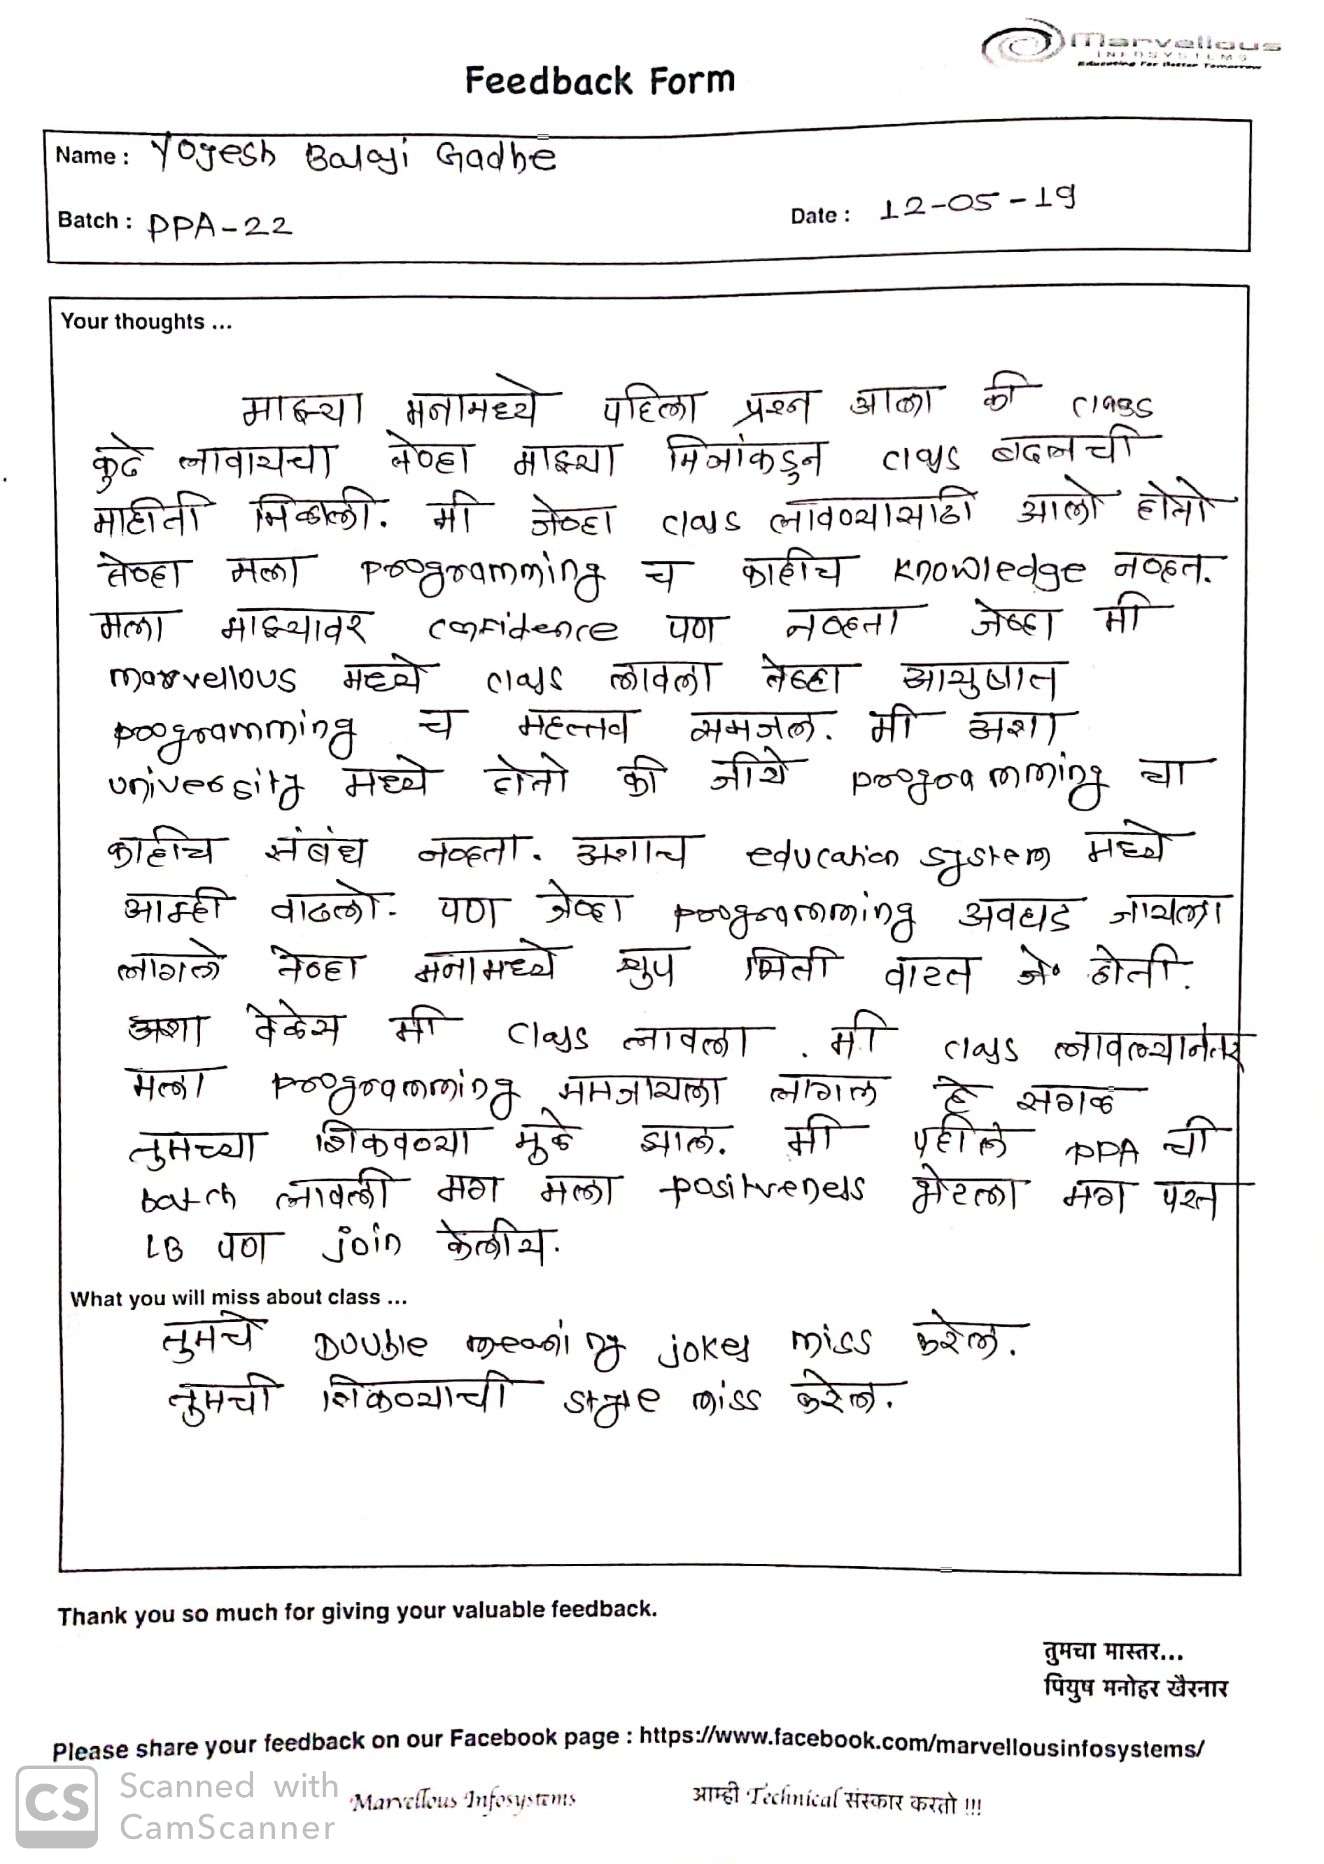 Marvellous
INFOSYSTEMS
Educating For Better Tomorrow
Feedback Form
Name : Yogesh Balaji Gadhe
Batch : PPA-22
Date : 12-05-19
Your thoughts ...
माझ्या मनामध्ये पहिला प्रश्न आला की class
कुठे लावायचा तेव्हा माझ्या मित्रांकडुन class बदलची
माहीती मिळाली. मी जेव्हा class लावण्यासाठी आलो होतो
तेव्हा मला programming च काहीच knowledge नव्हत.
मला माझ्यावर confidence पण नव्हता जेव्हा मी
marvellous मध्ये class लावला तेव्हा आयुष्यात
programming च महत्तव समजल. मी अशा
university मध्ये होतो की जीथे programming चा
काहीच संबंध नव्हता. अशाच education system मध्ये
आम्ही वाढलो. पण जेव्हा programming अवघड जायला
लागले तेव्हा मनामध्ये खुप भिती वाटत होती.
अशा वेळेस मी class लावला. मी class लावल्यानंतर
मला programming समजायला लागल हे सगळ
तुमच्या शिकवण्या मूळे झाल. मी पहीले PPA ची
batch लावली मग मला positiveness भेटला मग परत
LB पण join केलीय.
What you will miss about class ...
तुमचे Double meaning jokes miss करेल.
तुमची शिकण्याची style miss करेल.
Thank you so much for giving your valuable feedback.
तुमचा मास्तर...
पियुष मनोहर खैरनार
Please share your feedback on our Facebook page : https://www.facebook.com/marvellousinfosystems/
CS Scanned with
CamScanner
Marvellous Infosystems आम्ही Technical संस्कार करतो !!!